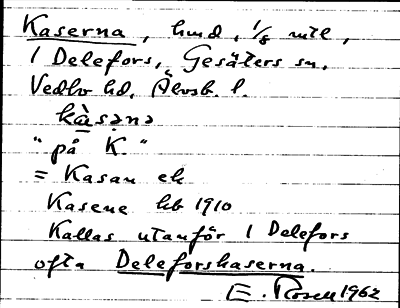 Kaserna, hmd, 1/8 mtl,
1 Delefors, Gesäters sn,
Vedbo hd, Älvsb. l.
kàsənɑ
"på K."
= Kasan ek
Kasene hb 1910
Kallas utanför 1 Delefors
ofta Deleforskaserna.
E. Rosell 1962